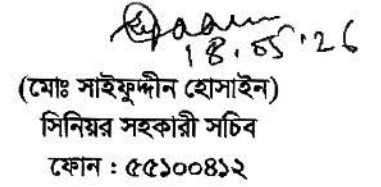 18.05.26
(মোঃ সাইফুদ্দীন হোসাইন)
সিনিয়র সহকারী সচিব
ফোন : ৫৫১০০৪১২